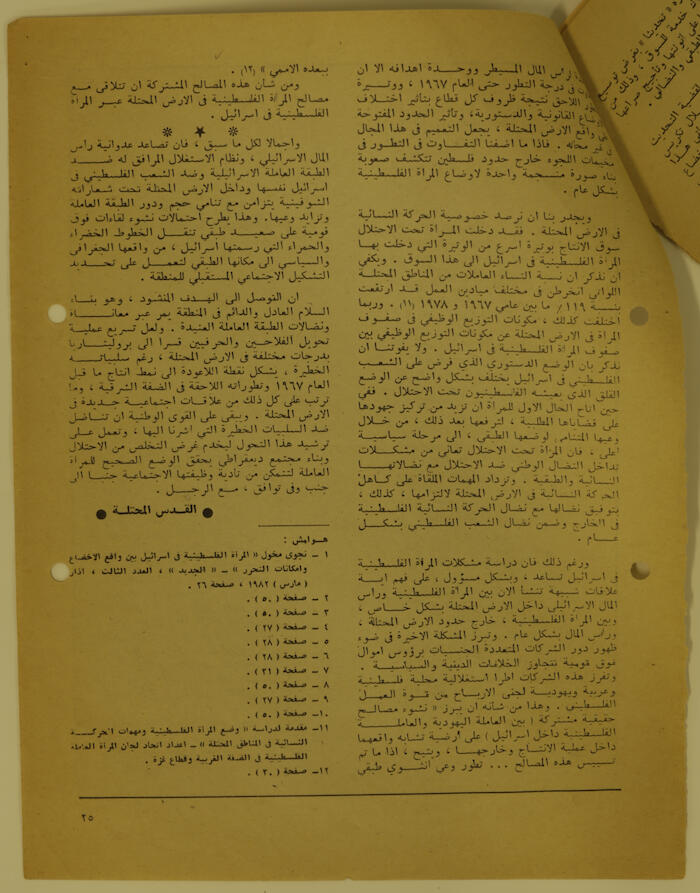 لرأس المال المسيطر ووحدة اهدافه الا ان
في درجة التطور حتى العام ١٩٦٧ ، ووتيرة
اللاحق نتيجة ظروف كل قطاع بتأثير اختلاف
القانونية والدستورية، وتأثير الحدود المفتوحة
واقع الارض المحتلة ، يجعل التعميم في هذا المجال
في غير محله . فاذا ما اضفنا التفاوت في التطور في
مخيمات اللجوء خارج حدود فلسطين تتكشف صعوبة
بناء صورة منسجمة واحدة لاوضاع المرأة الفلسطينية
بشكل عام .
ويجدر بنا ان نرصد خصوصية الحركة النسائية
في الارض المحتلة . فقد دخلت المرأة تحت الاحتلال
سوق الانتاج بوتيرة اسرع من الوتيرة التي دخلت بها
المرأة الفلسطينية في اسرائيل الى هذا السوق . ويكفي
ان نذكر ان نسبة النساء العاملات من المناطق المحتلة
اللواتي انخرطن في مختلف ميادين العمل قد ارتفعت
بنسبة ١١٩٪ ما بين عامي ١٩٦٧ و ١٩٧٨ (١١) . وربما
اختلفت كذلك ، مكونات التوزيع الوظيفي في صفوف
المرأة في الارض المحتلة عن مكونات التوزيع الوظيفي بين
صفوف المرأة الفلسطينية في اسرائيل . ولا يفوتنا ان
نذكر بان الوضع الدستوري الذي فرض على الشعب
الفلسطيني في اسرائيل يختلف بشكل واضح عن الوضع
القلق الذي يعيشه الفلسطينيون تحت الاحتلال . ففي
حين اتاح الحال الاول للمرأة ان تزيد من تركيز جهودها
على قضاياها المطلبية ، لترفعها بعد ذلك ، من خلال
وعيها المتنامي لوضعها الطبقي ، الى مرحلة سياسية
اعلى ، فان المرأة تحت الاحتلال تعاني من مشكلات
تداخل النضال الوطني ضد الاحتلال مع نضالاتها
النسائية والطبقية . وتزداد المهمات الملقاة على كاهل
الحركة النسائية في الارض المحتلة لالتزامها ، كذلك ،
بتوفيق نضالها مع نضال الحركة النسائية الفلسطينية
في الخارج وضمن نضال الشعب الفلسطيني بشكل
عام .
ورغم ذلك فان دراسة مشكلات المرأة الفلسطينية
في اسرائيل تساعد ، وبشكل مسؤول ، على فهم اية
علاقات شبيهة تنشأ الان بين المرأة الفلسطينية ورأس
المال الاسرائيلي داخل الارض المحتلة بشكل خاص ،
وبين المرأة الفلسطينية ، خارج حدود الارض المحتلة ،
ورأس المال بشكل عام . وتبرز المشكلة الاخيرة في ضوء
ظهور دور الشركات المتعددة الجنسيات برؤوس اموال
فوق قومية تتجاوز الخلافات الدينية والسياسية .
وتفرز هذه الشركات اطرا استغلالية محلية فلسطينية
وعربية ويهودية لجني الارباح من قوة العمل
الفلسطيني . وهذا من شأنه ان يبرز « نشوء مصالح
حقيقية مشتركة ( بين العاملة اليهودية والعاملة
الفلسطينية داخل اسرائيل ) على ارضية تشابه واقعهما
داخل عملية الانتاج وخارجها ، ويتيح ، اذا ما تم
تسييس هذه المصالح ... تطور وعي انثوي طبقي
ببعده الاممي » (١٢) .
ومن شأن هذه المصالح المشتركة ان تتلاقى مع
مصالح المرأة الفلسطينية في الارض المحتلة عبر المرأة
الفلسطينية في اسرائيل .
* ★ *
واجمالا لكل ما سبق ، فان تصاعد عدوانية رأس
المال الاسرائيلي ، ونظام الاستغلال المرافق له ضد
الطبقة العاملة الاسرائيلية وضد الشعب الفلسطيني في
اسرائيل نفسها وداخل الارض المحتلة تحت شعاراته
الشوفينية يتزامن مع تنامي حجم ودور الطبقة العاملة
وتزايد وعيها. وهذا يطرح احتمالات نشوء لقاءات فوق
قومية على صعيد طبقي تنقل الخطوط الخضراء
والحمراء التي رسمتها اسرائيل ، من واقعها الجغرافي
والسياسي الى مكانها الطبقي لتعمل على تحديد
التشكيل الاجتماعي المستقبلي للمنطقة .
ان التوصل الى الهدف المنشود ، وهو بناء
السلام العادل والدائم في المنطقة يمر عبر معاناة
ونضالات الطبقة العاملة العنيدة . ولعل تسريع عملية
تحويل الفلاحين والحرفيين قسرا الى بروليتاريا
بدرجات مختلفة في الارض المحتلة ، رغم سلبياته
الخطيرة ، يشكل نقطة اللاعودة الى نمط انتاج ما قبل
العام ١٩٦٧ وتطوراته اللاحقة في الضفة الشرقية ، وما
ترتب على كل ذلك من علاقات اجتماعية جديدة في
الارض المحتلة . ويبقى على القوى الوطنية ان تناضل
ضد السلبيات الخطيرة التي اشرنا اليها ، وتعمل على
ترشيد هذا التحول ليخدم غرض التخلص من الاحتلال
وبناء مجتمع ديمقراطي يحقق الوضع الصحيح للمرأة
العاملة لتتمكن من تأدية وظيفتها الاجتماعية جنبا الى
جنب وفي توافق ، مع الرجل .
● القدس المحتلة ●
هوامش :
١ ــ نجوى مخول « المرأة الفلسطينية في اسرائيل بين واقع الاخضاع
وامكانات التحرر » ــ « الجديد » ، العدد الثالث ، اذار
( مارس ) ١٩٨٢ ، صفحة ٢٦ .
٢ ــ صفحة ( ٥٠ ) .
٣ ــ صفحة ( ٥٠ ) .
٤ ــ صفحة ( ٢٧ ) .
٥ ــ صفحة ( ٢٨ ) .
٦ ــ صفحة ( ٢٨ ) .
٧ ــ صفحة ( ٣١ ) .
٨ ــ صفحة ( ٥٠ ) .
٩ ــ صفحة ( ٢٧ ) .
١٠ــ صفحة ( ٥٠ ) .
١١ــ مقدمة لدراسة « وضع المرأة الفلسطينية ومهمات الحركة
النسائية في المناطق المحتلة » ــ اعداد اتحاد لجان المرأة العاملة
الفلسطينية في الضفة الغربية وقطاع غزة .
١٢ــ صفحة ( ٣٠ ) .
٢٥